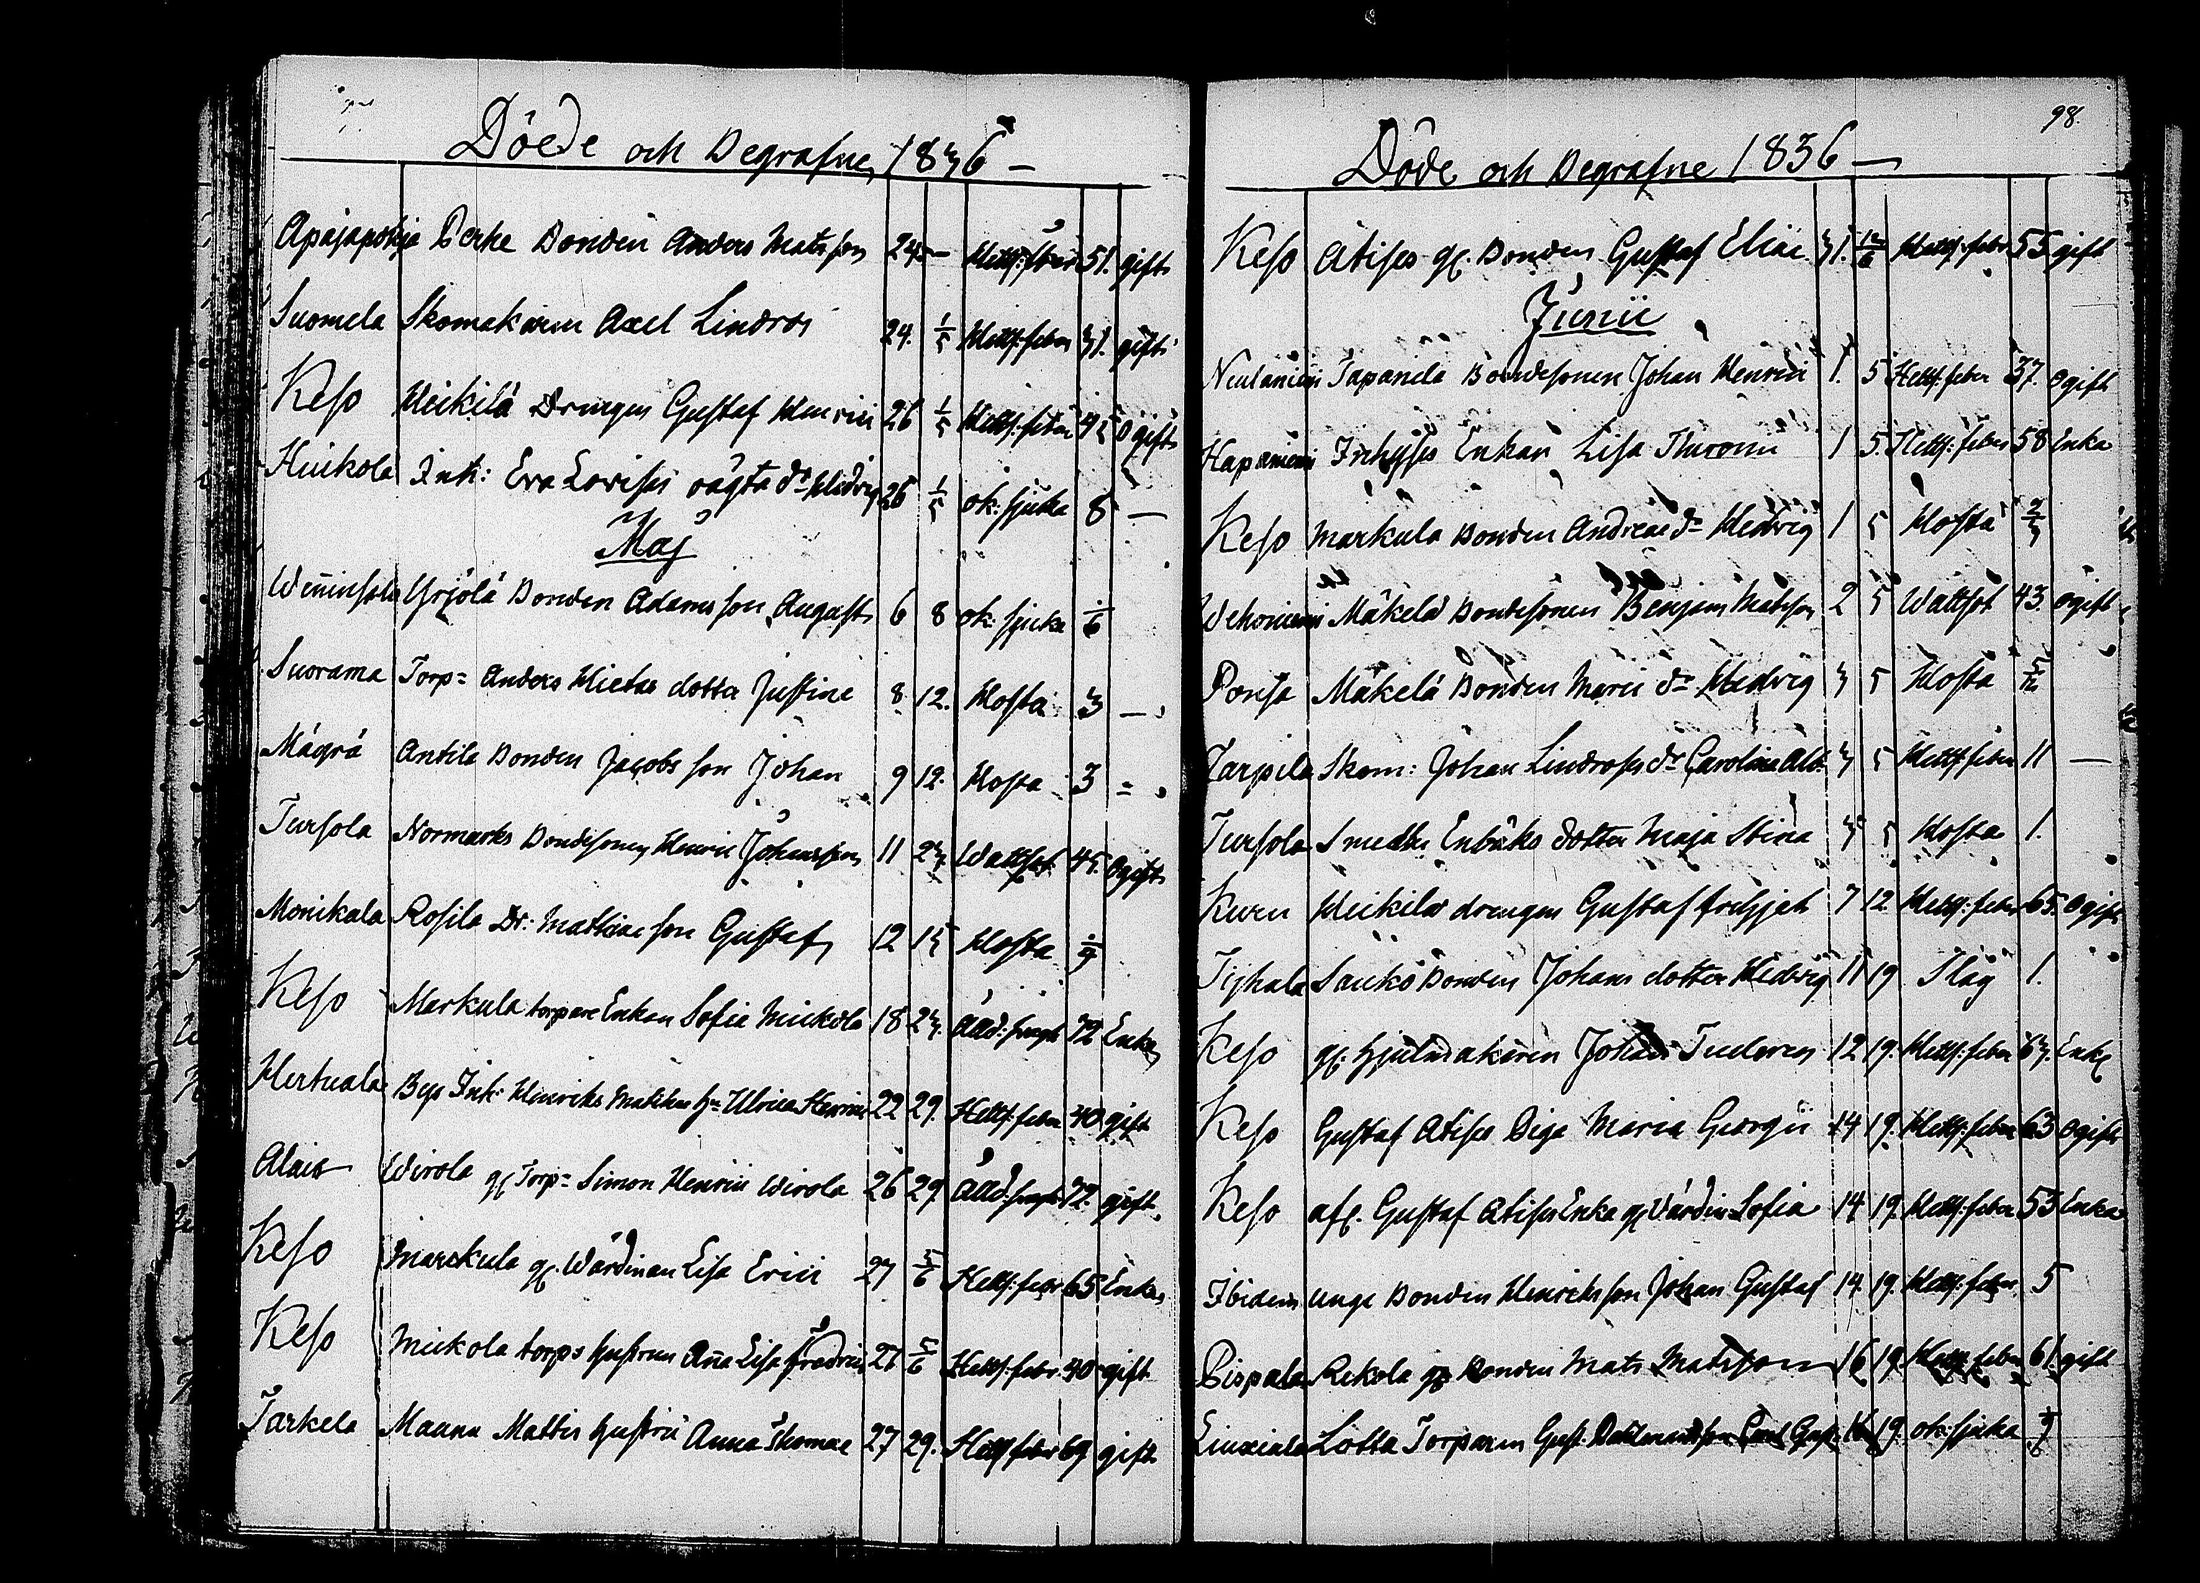 Döde och Begrafne 1836 —
Apajapohja Perhe Bonden Anders Matsson 24. — Hetts: feber 51. gift
Suomela Skomakaren Axel Lindros 24. 1/5 Hetts: feber 31. gift
Keso Heikilä Drengen Gustaf Henrici 26 1/5 Hetts: feber ogift
Huikola Inh: Eva Lovisas oägta dr Hedvig 26 1/5 ok: sjuka 8 —
Maj
Yrjölä Bonden Adams son August 6 8 ok: sjuka
Suorama Torp= Anders Hietas dotter Justina 8. 12. Hosta 3 —
Mägrä Antila Bonden Jacobs son Johan 9 12. Hosta 3 =
Tursola Normarks Bondesonen Henric Johansson 11 Wattsot 45. ogift
Monikala Rosila Dr: Mathiae son Gustaf 12 15 Hosta
Keso Markula torpare Enkan Sofia Mickola 18 Ålld: 72 Enka
Hertuala Bys Inh: Henriks Mathias hu Ulrica Henrici 22 29. Hetts: feber 40 gift
Wirola gl Torp= Simon Henrici Wirola 26 29 Ålld: 72. gift.
Keso Marckula gl. Wärdinnan Lisa Erici 27 5/6 Hetts: feber 65 Enka
Keso Mickola torps hustrun Ana Lisa Fredrici 27 5/6 Hetts: feber 40 gift
Tarkela Maunu Mattis hustru Anna Thomae 27 29. Hetts feber 69 gift
98.
Döde och Begrafne 1836 —
Keso Atises gl. Bonden Gustaf Eliae 31. 12/6 Hetts: feber 55 gift
Junii
Neulaniemi Tapanila Bondesonen Johan Henrici 1. 5 Hetts: feber 37. ogift
Hapaniemi Enkan Lisa Thuronis 1 5. Hetts: feber 58 Enka
Keso Markula Bonden Andreae dr Hedvig 1 5 Hosta 2/3
Wehoniemi Mäkelä Bondesonen Benjam Matsson 2 5 Wattsot 43. ogift
Ponsa Mäkelä Bonden Marii dr Hedvig 3 5 Hosta 5/12
Tarpila Skom: Johan Lindroses dr Carolina Alb: 3 5 Hetts: feber 11 —
Tursola Smeden Enbäks dotter Maja Stina 3 5 Hosta 1.
Kuru Heikilä drengen Gustaf 7 12 Hetts: feber 65. ogift
Tiihala Sauko Bonden Johans dotter Hedvig 11 19 Slag 1.
Keso gl. hjulmakaren Johan Tudoren 12 19. Hetts: feber 63. Enkl
Keso Gustaf Atises Piga Maria Georgii 14 19. Hetts: feber 63 ogift
Keso afl. Gustaf Atises Enka gl Värdin Sofia 14 19. Hetts: feber 53 Enka
Ibidem unge Bonden Henriks son Johan Gustaf 14. 19. Hetts: feber 5
Pispala Rekola gl Bonden Mats Matsson 16 19. Hetts feber 61. gift
Liuxiala Lotta Torparen Gust. 19. ok: sjuka